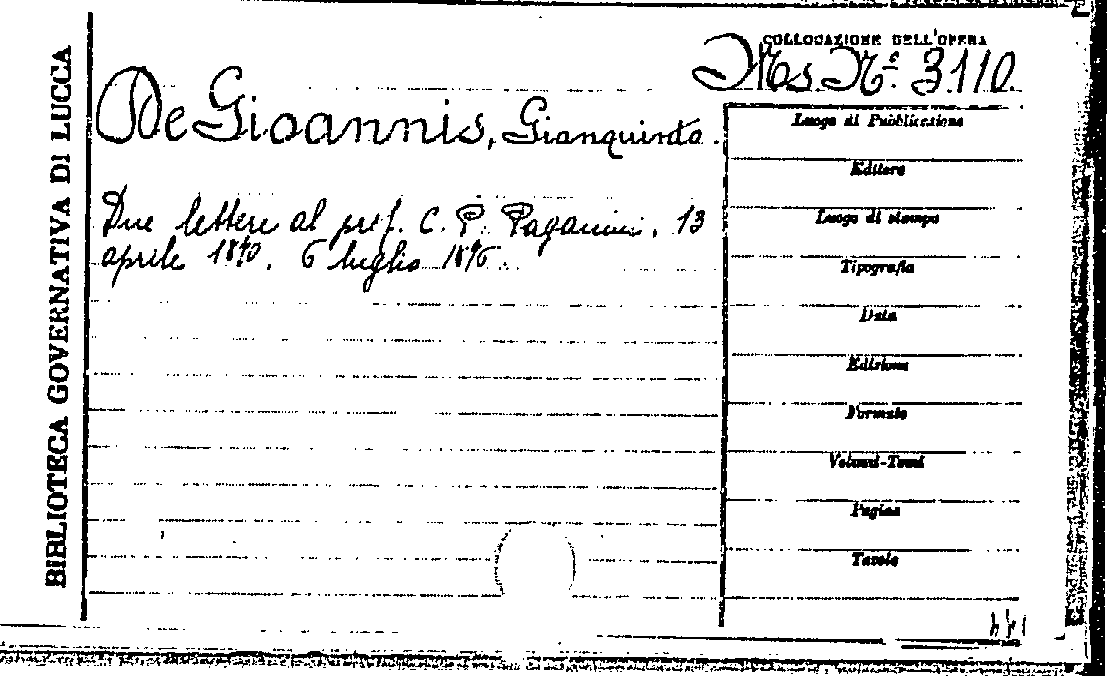 BIBLIOTECA GOVERNATIVA DI LUCCA
COLLOCAZIONE DELL'OPERA
Ms. Nº 3110.
De Gioannis, Gianquinto.
Due lettere al prof. C. P. Paganini, 13
aprile . 6 luglio
Luogo di Pubblicazione
Editore
Luogo di stampa
Tipografia
Data
Edizione
Formato
Volumi-Tomi
Pagine
Tavole